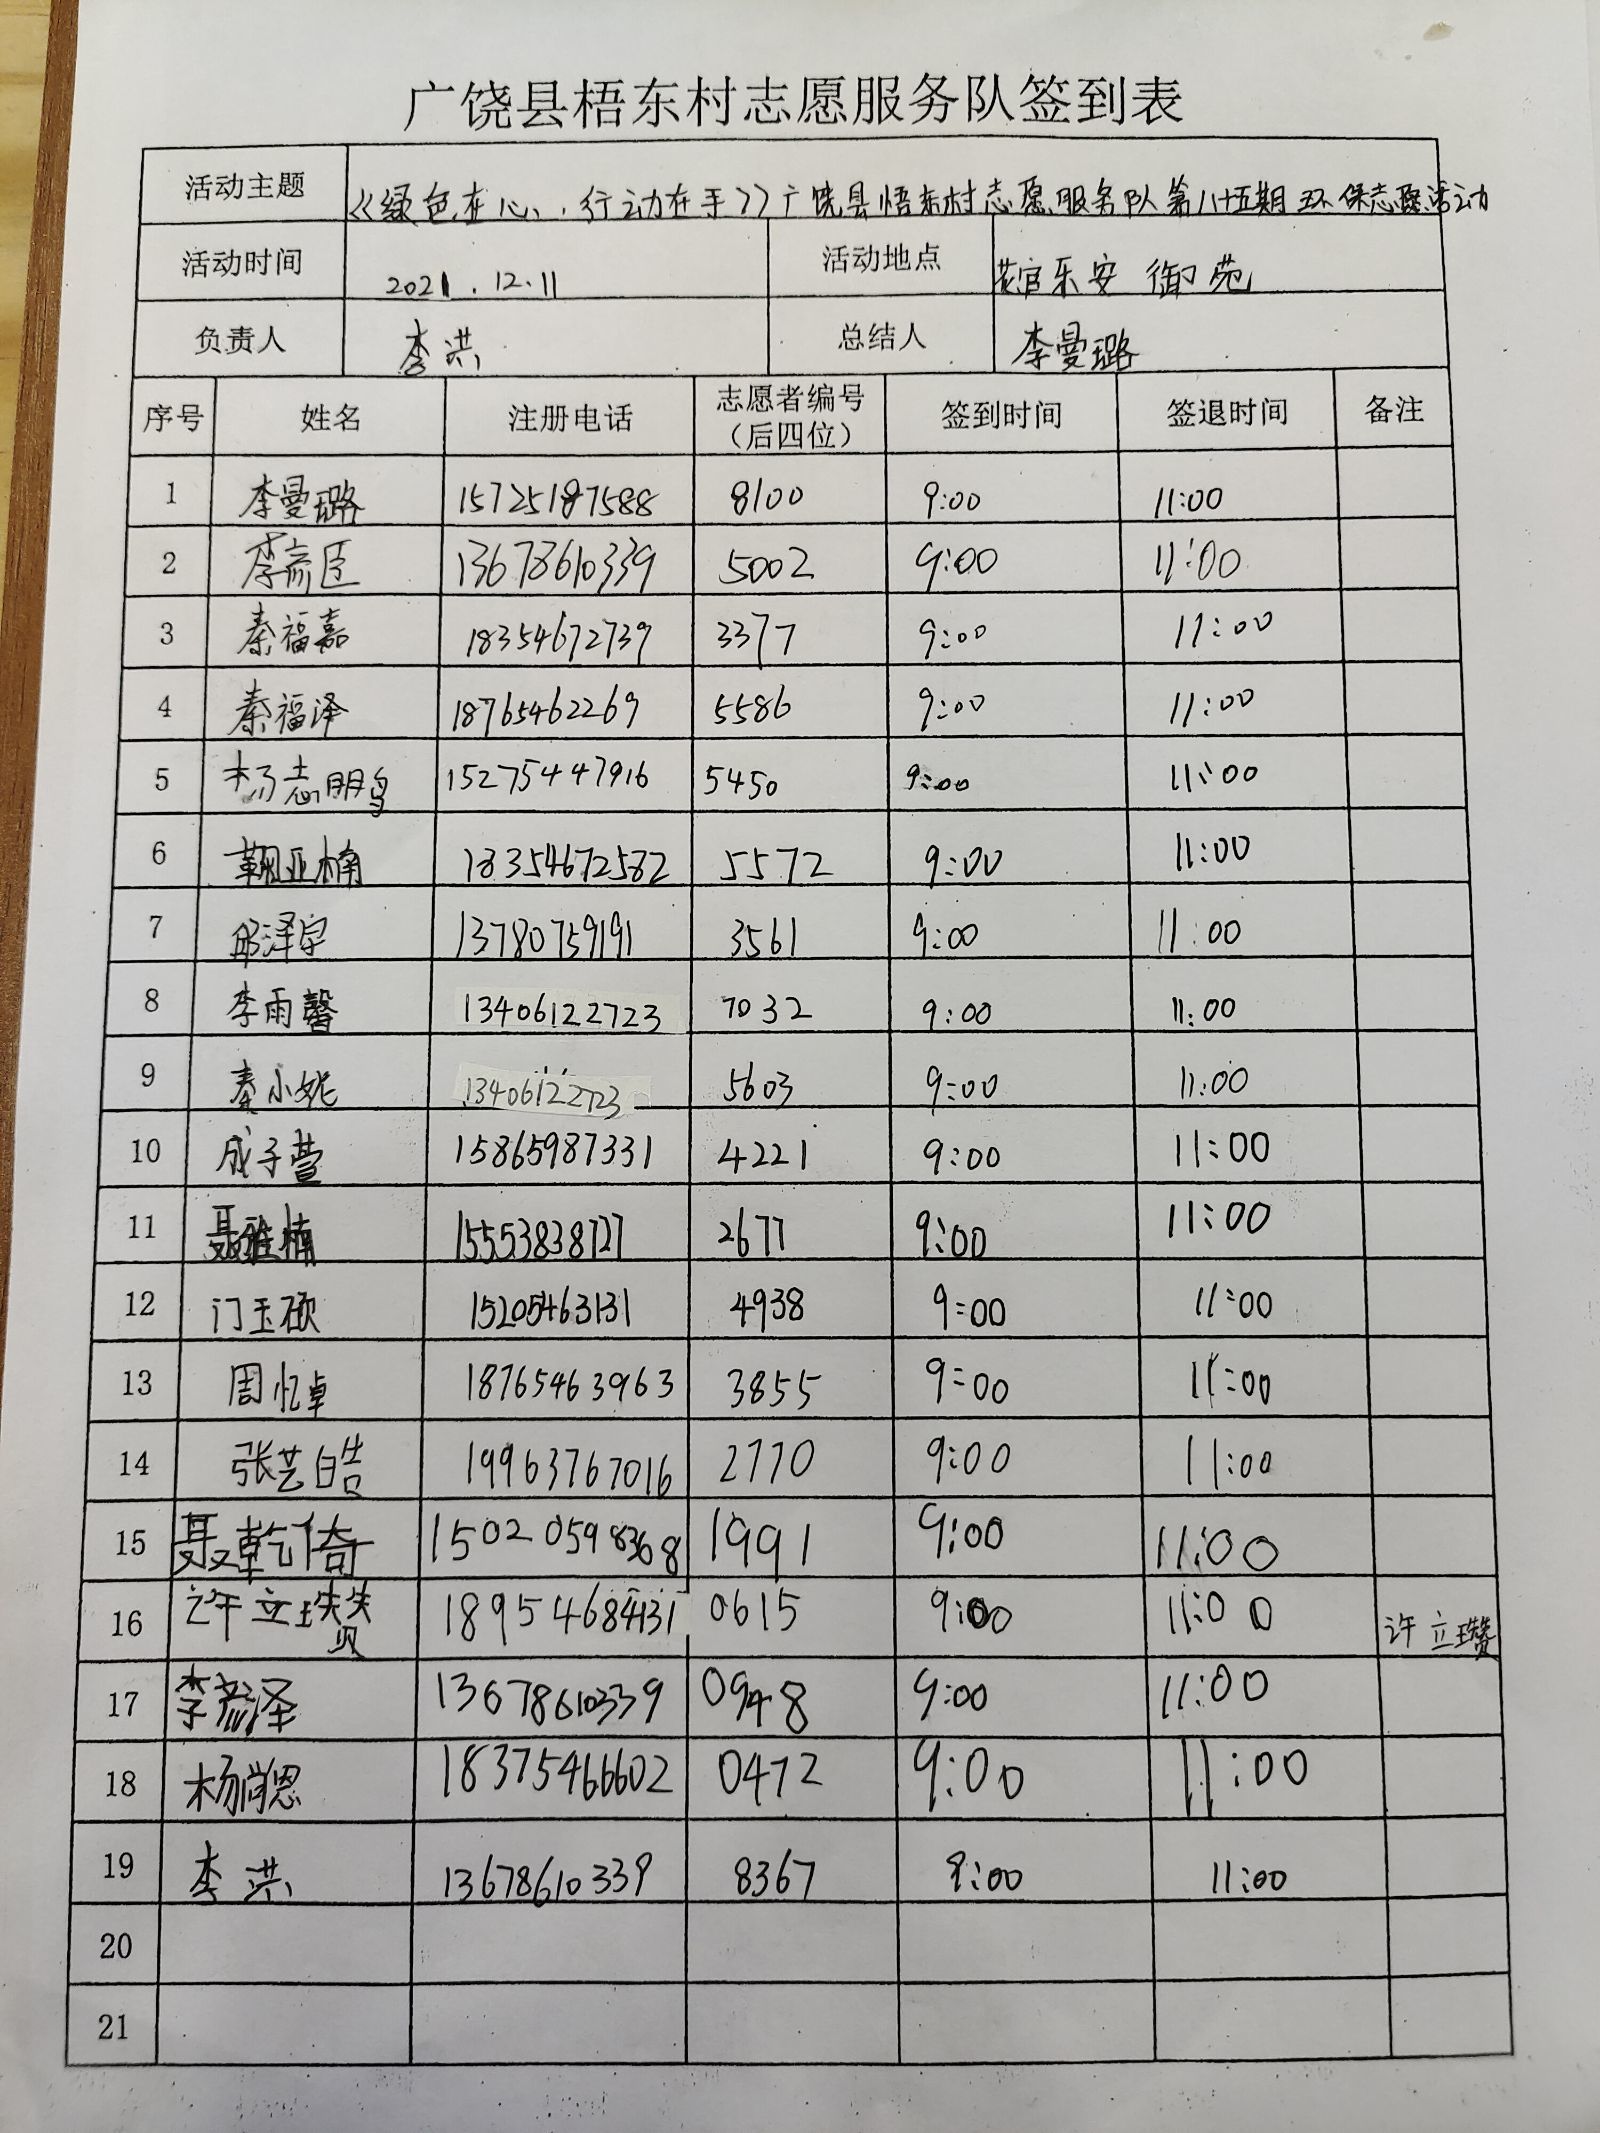 广饶县梧东村志愿服务队签到表
活动主题 《绿色在心,行动在手》广饶县梧东村志愿服务队第八十五期环保志愿活动
活动时间 2021.12.11 活动地点 花官乐安御苑
负责人 李洪 总结人 李曼璐
序号 姓名 注册电话 志愿者编号（后四位） 签到时间 签退时间 备注
1 李曼璐 15725187588 8100 9:00 11:00
2 李彦臣 13678610339 5002 9:00 11:00
3 秦福嘉 18354672739 3377 9:00 11:00
4 秦福泽 18765462269 5586 9:00 11:00
5 杨志鹏 15275447916 5450 9:00 11:00
6 鞠亚楠 18354672582 5572 9:00 11:00
7 邱泽宇 13780759191 3561 9:00 11:00
8 李雨馨 13406122723 7032 9:00 11:00
9 秦小妮 13406122723 5603 9:00 11:00
10 成子萱 15865987331 4221 9:00 11:00
11 聂雅楠 15553838727 2677 9:00 11:00
12 门玉硕 15205463131 4938 9:00 11:00
13 周忆卓 18765463963 3855 9:00 11:00
14 张艺皓 19963767016 2770 9:00 11:00
15 聂乾倚 15020598368 1991 9:00 11:00
16 许立瓒 18954684131 0615 9:00 11:00 许立瓒
17 李彦泽 13678610339 0948 9:00 11:00
18 杨尚恩 18375466602 0472 9:00 11:00
19 李洪 13678610339 8367 9:00 11:00
20
21